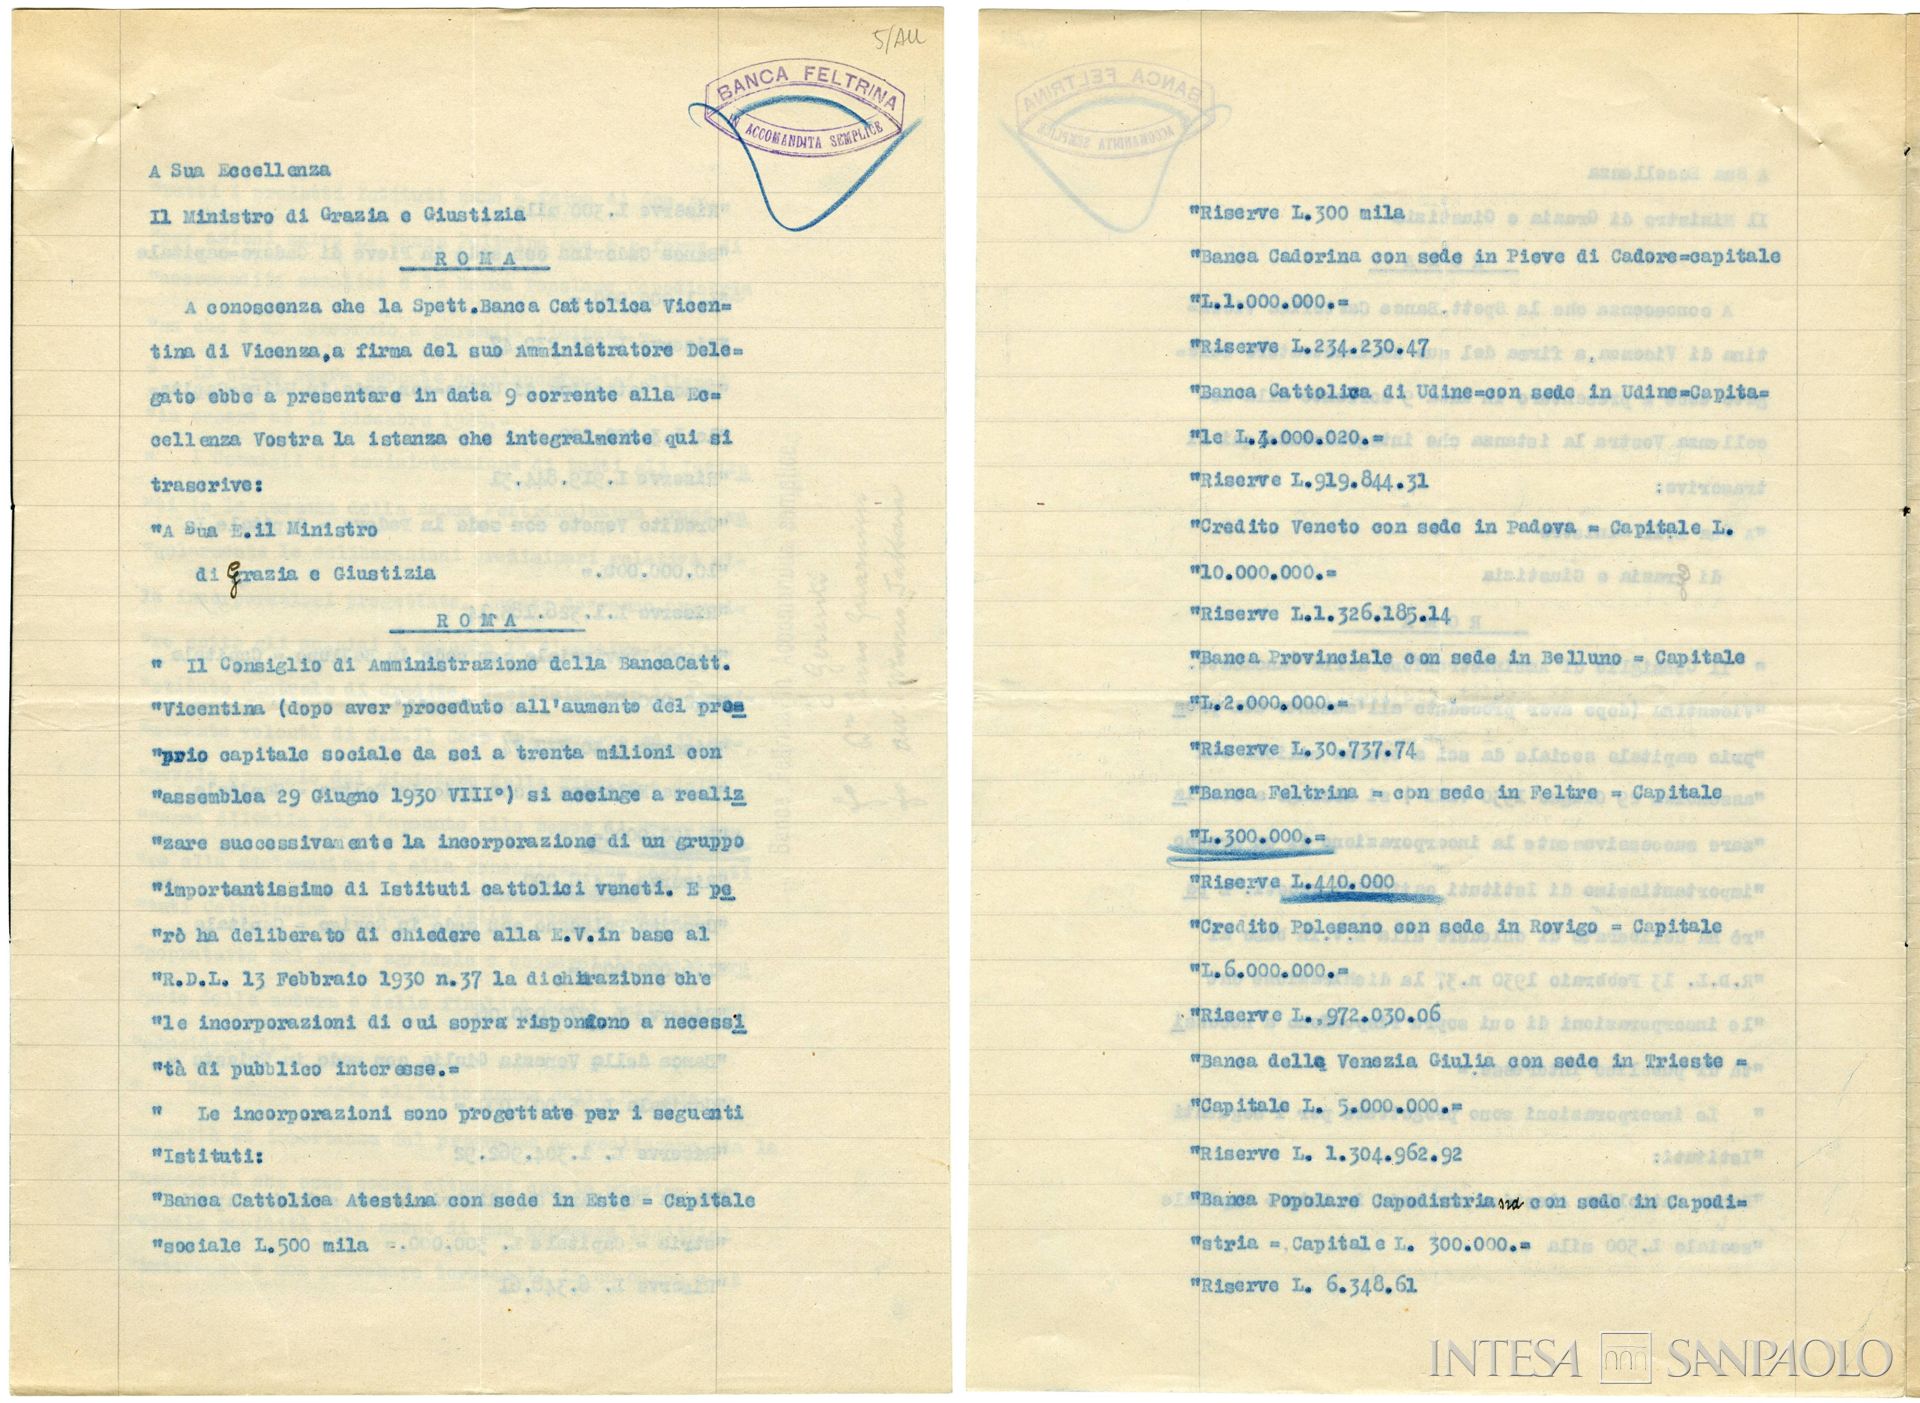 5/AU
BANCA FELTRINA
IN ACCOMANDITA SEMPLICE
A Sua Eccellenza
Il Ministro di Grazia e Giustizia
R O M A
A conoscenza che la Spett.Banca Cattolica Vicen=
tina di Vicenza,a firma del suo Amministratore Dele=
gato ebbe a presentare in data 9 corrente alla Ec=
cellenza Vostra la istanza che integralmente qui si
trascrive:
"A Sua E.il Ministro
di Grazia e Giustizia
R O M A
" Il Consiglio di Amministrazione della BancaCatt.
"Vicentina (dopo aver proceduto all'aumento del pro=
"prio capitale sociale da sei a trenta milioni con
"assemblea 29 Giugno 1930 VIII°) si accinge a realiz
"zare successivamente la incorporazione di un gruppo
"importantissimo di Istituti cattolici veneti. E pe
"rò ha deliberato di chiedere alla E.V.in base al
"R.D.L. 13 Febbraio 1930 n.37 la dichirazione che
"le incorporazioni di cui sopra rispondono a necessi
"tà di pubblico interesse.=
" Le incorporazioni sono progettate per i seguenti
"Istituti:
"Banca Cattolica Atestina con sede in Este = Capitale
"sociale L.500 mila
"Riserve L.300 mila
"Banca Cadorina con sede in Pieve di Cadore=capitale
"L.1.000.000.=
"Riserve L.234.230.47
"Banca Cattolica di Udine=con sede in Udine=Capita=
"le L.4.000.020.=
"Riserve L.919.844.31
"Credito Veneto con sede in Padova = Capitale L.
"10.000.000.=
"Riserve L.1.326.185.14
"Banca Provinciale con sede in Belluno = Capitale
"L.2.000.000.=
"Riserve L.30.737.74
"Banca Feltrina = con sede in Feltre = Capitale
"L.300.000.=
"Riserve L.440.000
"Credito Polesano con sede in Rovigo = Capitale
"L.6.000.000.=
"Riserve L.,972.030.06
"Banca della Venezia Giulia con sede in Trieste =
"Capitale L. 5.000.000.=
"Riserve L. 1.304.962.92
"Banca Popolare Capodistriana con sede in Capodi=
"stria = Capitale L. 300.000.=
"Riserve L. 6.348.61
INTESA SANPAOLO